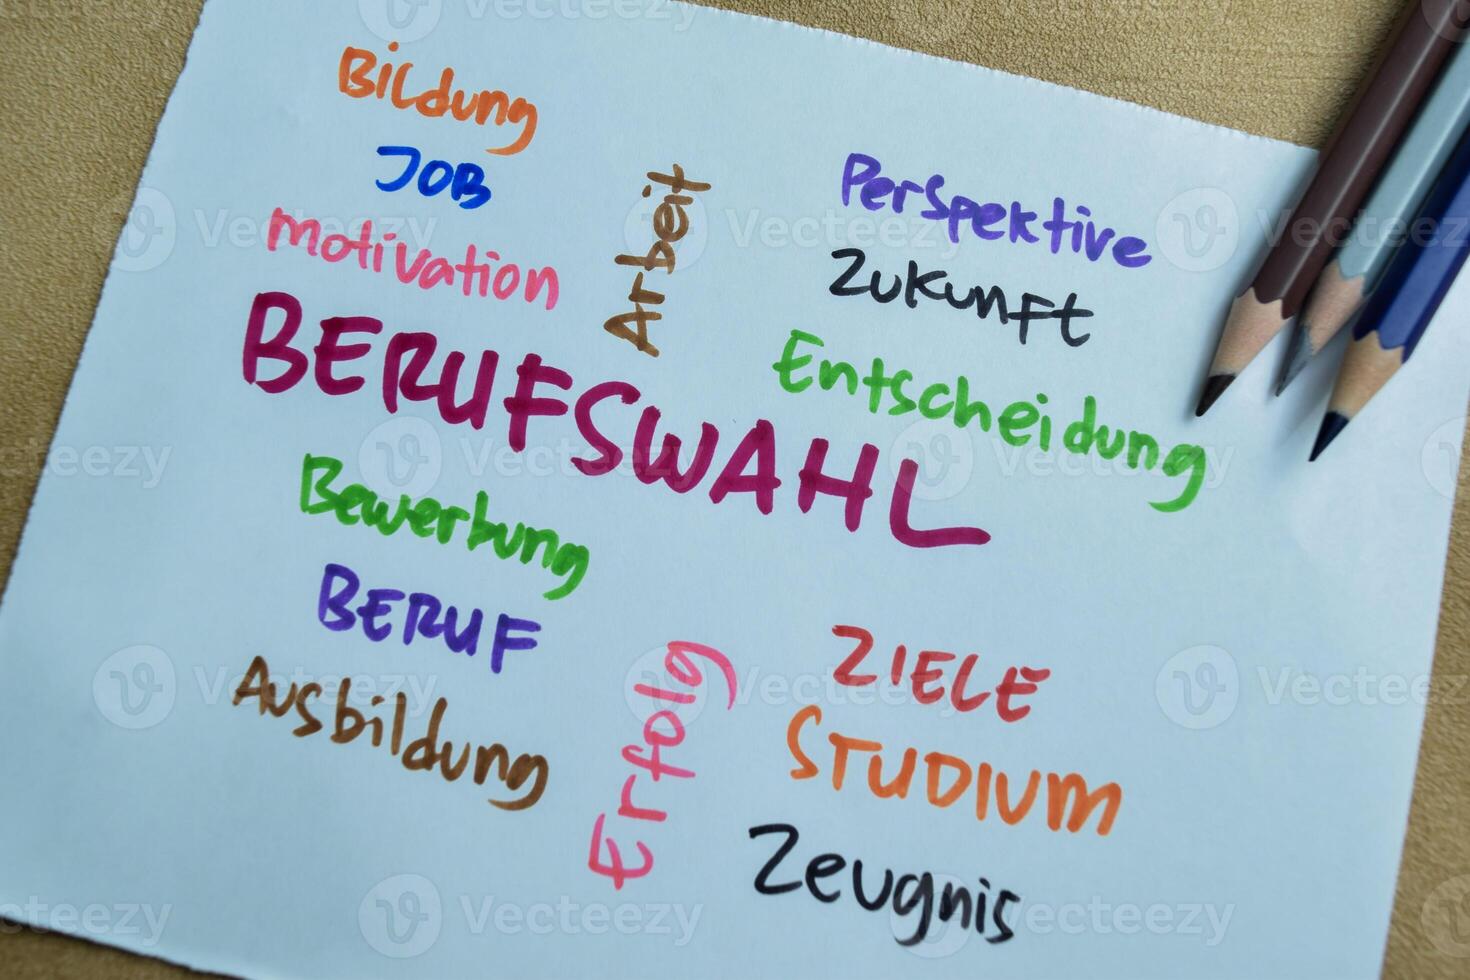 Bildung
JOB
Motivation
Arbeit
Perspektive
Zukunft
Entscheidung
BERUFSWAHL
Bewerbung
BERUF
Ausbildung
Erfolg
ZIELE
STUDIUM
Zeugnis
Vecteezy